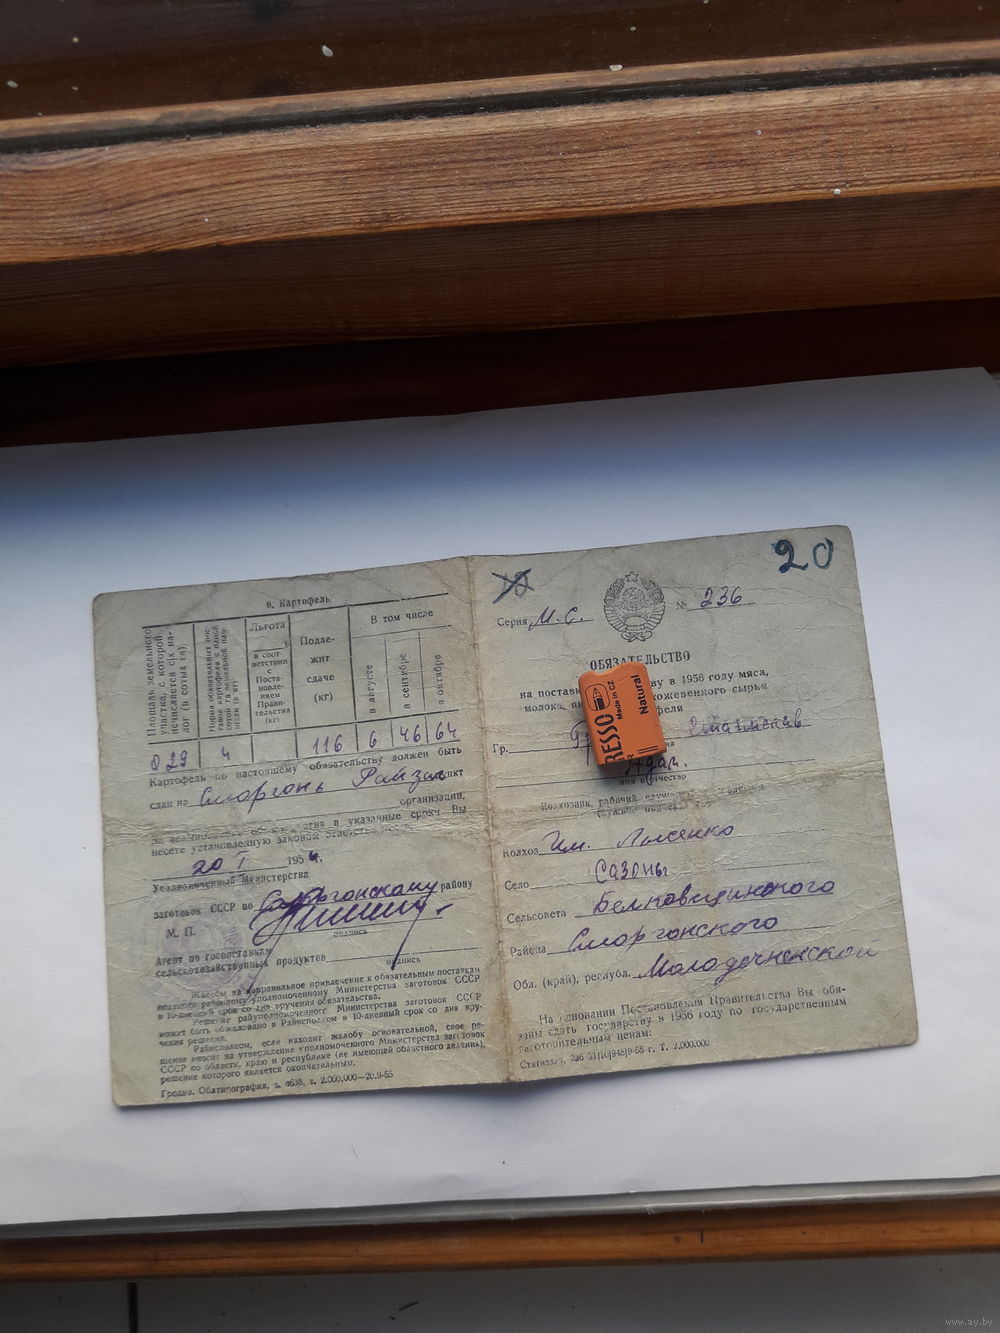 6. Картофель
Площадь земельного участка, с которой исчисляется с/х налог (в сотых га)
Норма обязательных поставок картофеля с одной сотой га земельной площади (в кг)
Льгота
в соответствии с Постановлением Правительства (кг)
Подлежит сдаче (кг)
В том числе
в августе
в сентябре
в октябре
0 29
4
116
6
46
64
Картофель по настоящему обязательству должен быть
сдан на Сморгонь пункт
организации.
За невыполнение в указанные сроки Вы
несете установленную законом
20 I 1956 г.
Уполномоченный Министерства
заготовок СССР по Сморгонскому району
М. П.
подпись
Агент по госпоставкам
сельскохозяйственных продуктов
подпись
Жалобы на неправильное привлечение к обязательным поставкам
подаются районному уполномоченному Министерства заготовок СССР
в 10-дневный срок со дня вручения обязательства.
Решение райуполномоченного Министерства заготовок СССР
может быть обжаловано в Райисполком в 10-дневный срок со дня вру-
чения решения.
Райисполком, если находит жалобу основательной, свое ре-
шение вносит на утверждение уполномоченного Министерства заготовок
СССР по области, краю и республике (не имеющей областного деления),
решение которого является окончательным.
Гродно. Облтипография, з. 4638, т. 2.000.000—20.9-55
20
Серия М. С.
№ 236
ОБЯЗАТЕЛЬСТВО
на постав ву в 1956 году мяса,
молока, кожевенного сырья
феля
Гр.
Адам.
имя и отчество
Колхозник, рабочий
Колхоз Им. Лысенко
Село Сазоны
Сельсовета Белковщинского
Района Сморгонского
Обл. (край), республ. Молодечненской
На основании Постановления Правительства Вы обя-
заны сдать государству в 1956 году по государственным
заготовительным ценам:
RESSO
Made in CZ
Natural
www.ay.by